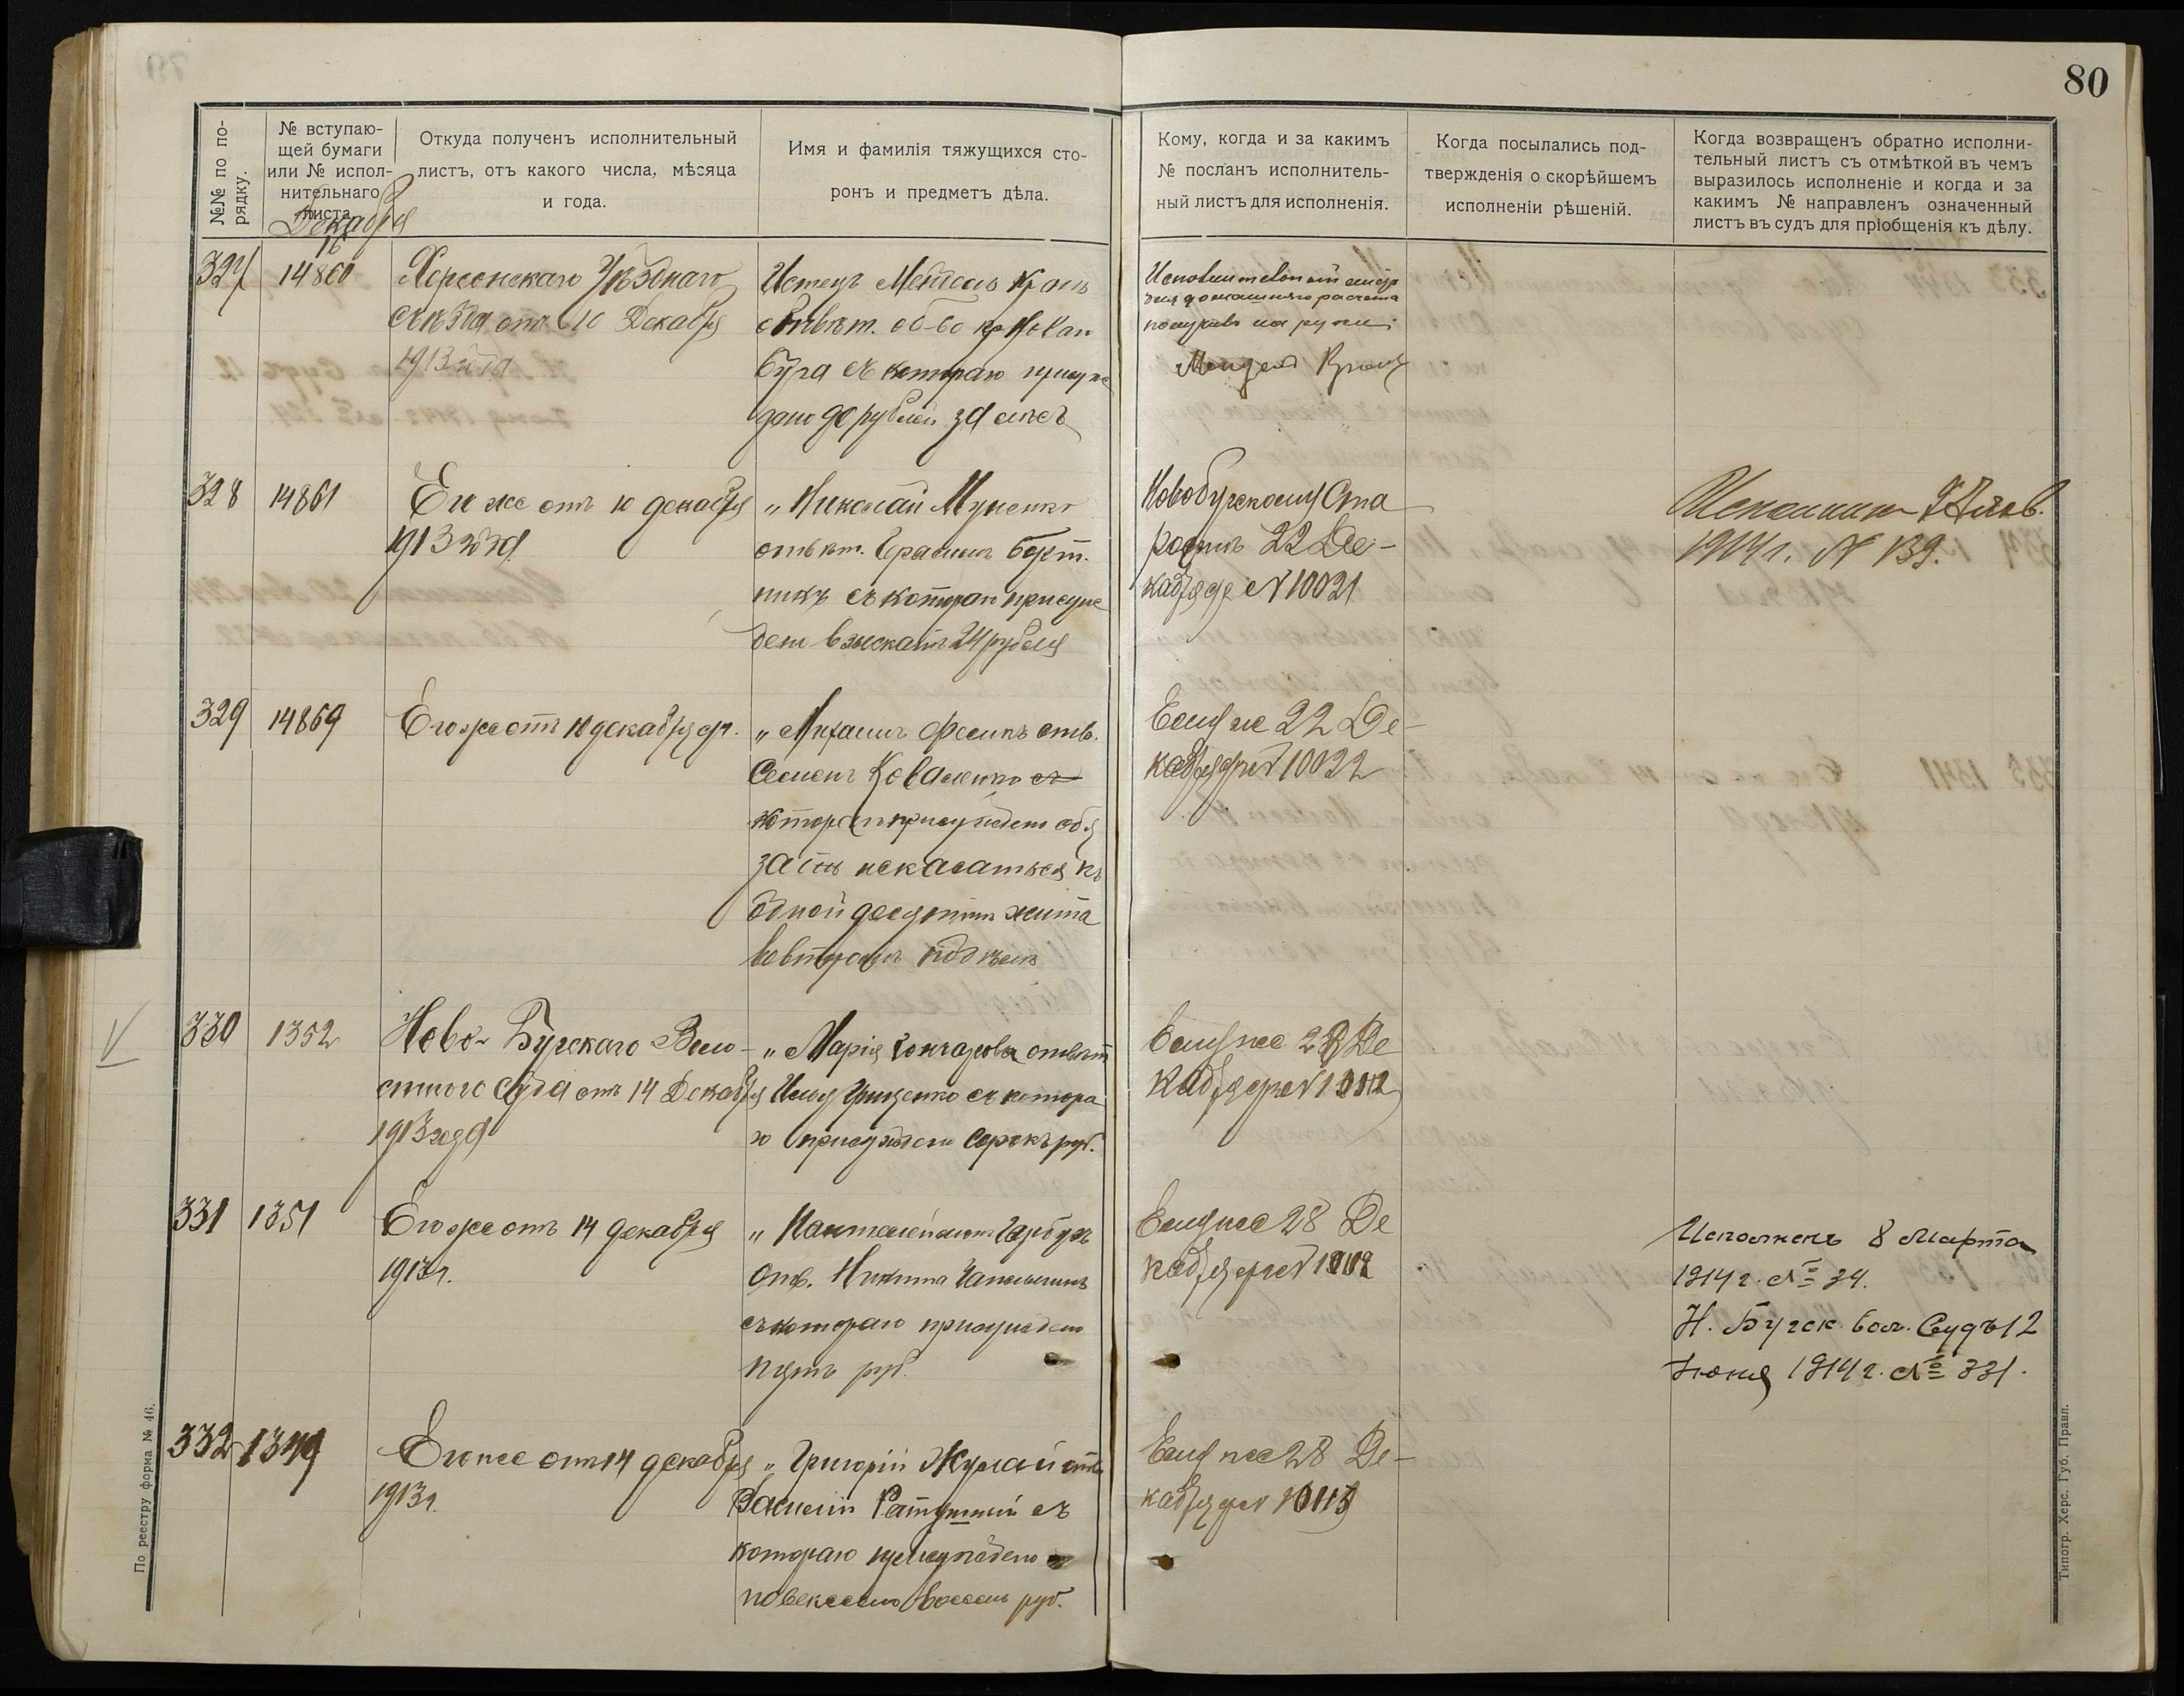 80
№№ по по-
рядку.
№ вступаю-
щей бумаги
или № испол-
нительнаго
листа.
Откуда полученъ исполнительный
листъ, отъ какого числа, мѣсяца
и года.
Имя и фамилія тяжущихся сто-
ронъ и предметъ дѣла.
Кому, когда и за какимъ
№ посланъ исполнитель-
ный листъ для исполненія.
Когда посылались под-
твержденія о скорѣйшемъ
исполненіи рѣшеній.
Когда возвращенъ обратно исполни-
тельный листъ съ отмѣткой въ чемъ
выразилось исполненіе и когда и за
какимъ № направленъ означенный
листъ въ судъ для пріобщенія къ дѣлу.
Декабря
16
327
14860
Херсонскаго Уѣзднаго
съѣзда отъ 10 Декабря
1913 года
Истецъ Мендель
отвѣт. об-во
Буга съ котораго присуж
дено 90 рублей за
Исполнительный листъ
для домашняго расчета
получилъ на руки
Мендель
328
14861
Ег же отъ 10 декабря
1913 года
„ Николай
отвѣт. Герасимъ
никъ съ котораго присуж
дено взыскать 24 рубля
Новобугскому Ста
ростѣ 22 Де-
кабря № 10021
1914 г. № 139.
329
14869
Его же отъ 10 декабря
„ Михаилъ отв.
Семенъ Коваленко съ
котораго присуждено обя
зать не касаться къ
одной десятинѣ жита
Ему же 22 Де-
кабря № 10022
330
1352
Ново-Бугскаго Воло-
стного Суда отъ 14 Декабря
1913 года
„ Марія Гончарова отвѣт
Гриценко съ котора
го присуждено Сорокъ руб.
Ему же 28 Де
кабря №
331
1351
Его же отъ 14 декабря
1913 г.
„ Пантелеймонъ Гарбузъ
Отв. Никита
съ котораго присуждено
пять руб.
Ему же 28 Де
кабря №
Исполненъ 8 Марта
1914 г. № 34.
Н. Бугск. вол. Судъ 12
Іюня 1914 г. № 331.
332
1349
Его же отъ 14 декабря
1913 г.
„ Григорій отв
Василій Ратушній съ
котораго присуждено
по векселю восемь руб.
Ему же 28 Де-
кабря №
По реестру форма № 46.
Типогр. Херс. Губ. Правл.